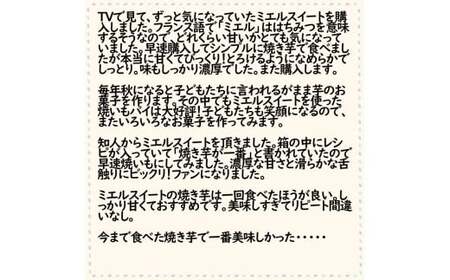 TVで見て、ずっと気になっていたミエルスイートを購
入しました。フランス語で「ミエル」ははちみつを意味
するそうなので、どれくらい甘いかとても気になって
いました。早速購入してシンプルに焼き芋で食べまし
たが本当に甘くてびっくり！とろけるようになめらかで
しっとり。味もしっかり濃厚でした。また購入します。
毎年秋になると子どもたちに言われるがまま芋のお
菓子を作ります。その中でもミエルスイートを使った
焼いもパイは大好評！子どもたちも笑顔になるので、
またいろいろなお菓子を作ってみます。
知人からミエルスイートを頂きました。箱の中にレシ
ピが入っていて「焼き芋が一番」と書かれていたので
早速焼いもにしてみました。濃厚な甘さと滑らかな舌
触りにビックリ！ファンになりました。
ミエルスイートの焼き芋は一回食べたほうが良い。し
っかり甘くておすすめです。美味しすぎてリピート間違
いなし。
今まで食べた焼き芋で一番美味しかった・・・・・